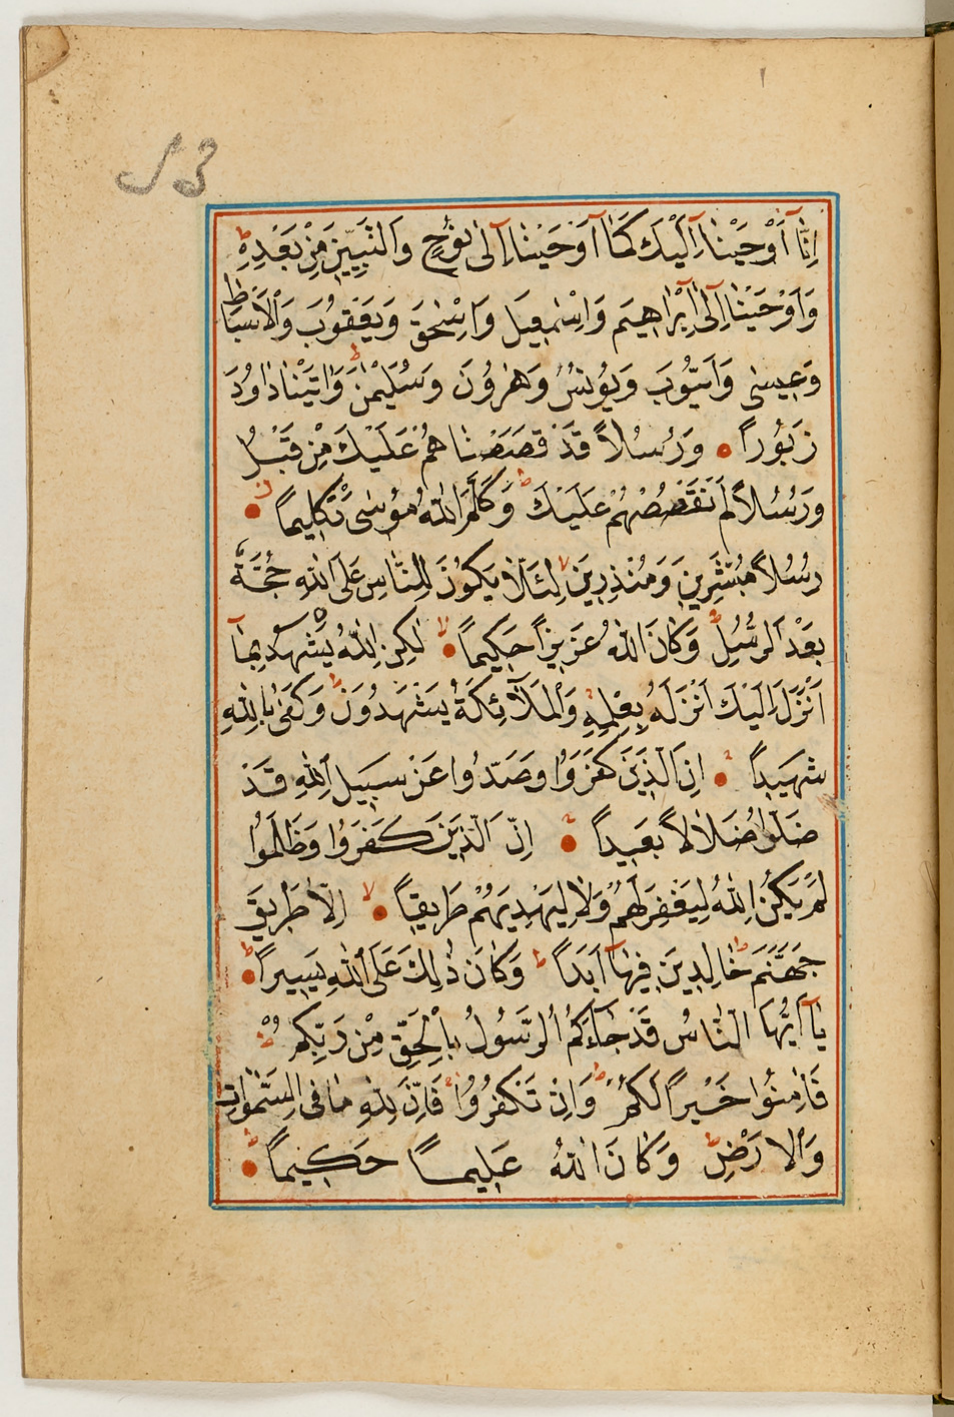 53
اِنَّٓا اَوْحَيْنَٓا اِلَيْكَ كَمَٓا اَوْحَيْنَٓا اِلٰى نُوْحٍ وَالنَّبِيّٖنَ مِنْ بَعْدِهٖ ط
وَاَوْحَيْنَٓا اِلٰٓى اِبْرَاهِيمَ وَاِسْمٰعِيلَ وَاِسْحٰقَ وَيَعْقُوبَ وَالْاَسْبَاطِ
وَعِيسٰى وَاَيُّوبَ وَيُونُسَ وَهٰرُونَ وَسُلَيْمٰنَ ط وَاٰتَيْنَا دَاوُدَ
زَبُورًا وَرُسُلاً قَدْ قَصَصْنَاهُمْ عَلَيْكَ مِنْ قَبْلُ
وَرُسُلاً لَمْ نَقْصُصْهُمْ عَلَيْكَ ط وَكَلَّمَ اللّٰهُ مُوسٰى تَكْلِيمًا
رُسُلاً مُبَشِّرِينَ وَمُنْذِرِينَ لِئَلَّا يَكُونَ لِلنَّاسِ عَلَى اللّٰهِ حُجَّةٌ
بَعْدَ الرُّسُلِ ط وَكَانَ اللّٰهُ عَزِيزًا حَكِيمًا لا لٰكِنِ اللّٰهُ يَشْهَدُ بِمَٓا
اَنْزَلَ اِلَيْكَ اَنْزَلَهُ بِعِلْمِهٖ ج وَالْمَلَٓائِكَةُ يَشْهَدُونَ ط وَكَفٰى بِاللّٰهِ
شَهِيدًا اِنَّ الَّذِينَ كَفَرُوا وَصَدُّوا عَنْ سَبِيلِ اللّٰهِ قَدْ
ضَلُّوا ضَلَالاً بَعِيدًا اِنَّ الَّذِينَ كَفَرُوا وَظَلَمُوا
لَمْ يَكُنِ اللّٰهُ لِيَغْفِرَ لَهُمْ وَلَا لِيَهْدِيَهُمْ طَرِيقًا لا اِلَّا طَرِيقَ
جَهَنَّمَ خَالِدِينَ فِيهَٓا اَبَدًا ط وَكَانَ ذٰلِكَ عَلَى اللّٰهِ يَسِيرًا ط
يَٓا اَيُّهَا النَّاسُ قَدْ جَٓاءَكُمُ الرَّسُولُ بِالْحَقِّ مِنْ رَبِّكُمْ
فَاٰمِنُوا خَيْرًا لَكُمْ ط وَاِنْ تَكْفُرُوا فَاِنَّ لِلّٰهِ مَا فِى السَّمٰوَاتِ
وَالْاَرْضِ ط وَكَانَ اللّٰهُ عَلِيمًا حَكِيمًا ط